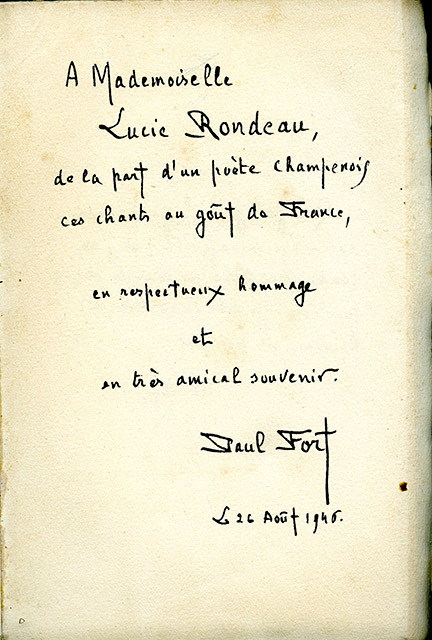 A Mademoiselle
Lucie Rondeau,
de la part d'un poète Champenois
ces chants au goût de France,
en respectueux hommage
et
en très amical souvenir.
Paul Fort
Le 26 Août 1946.